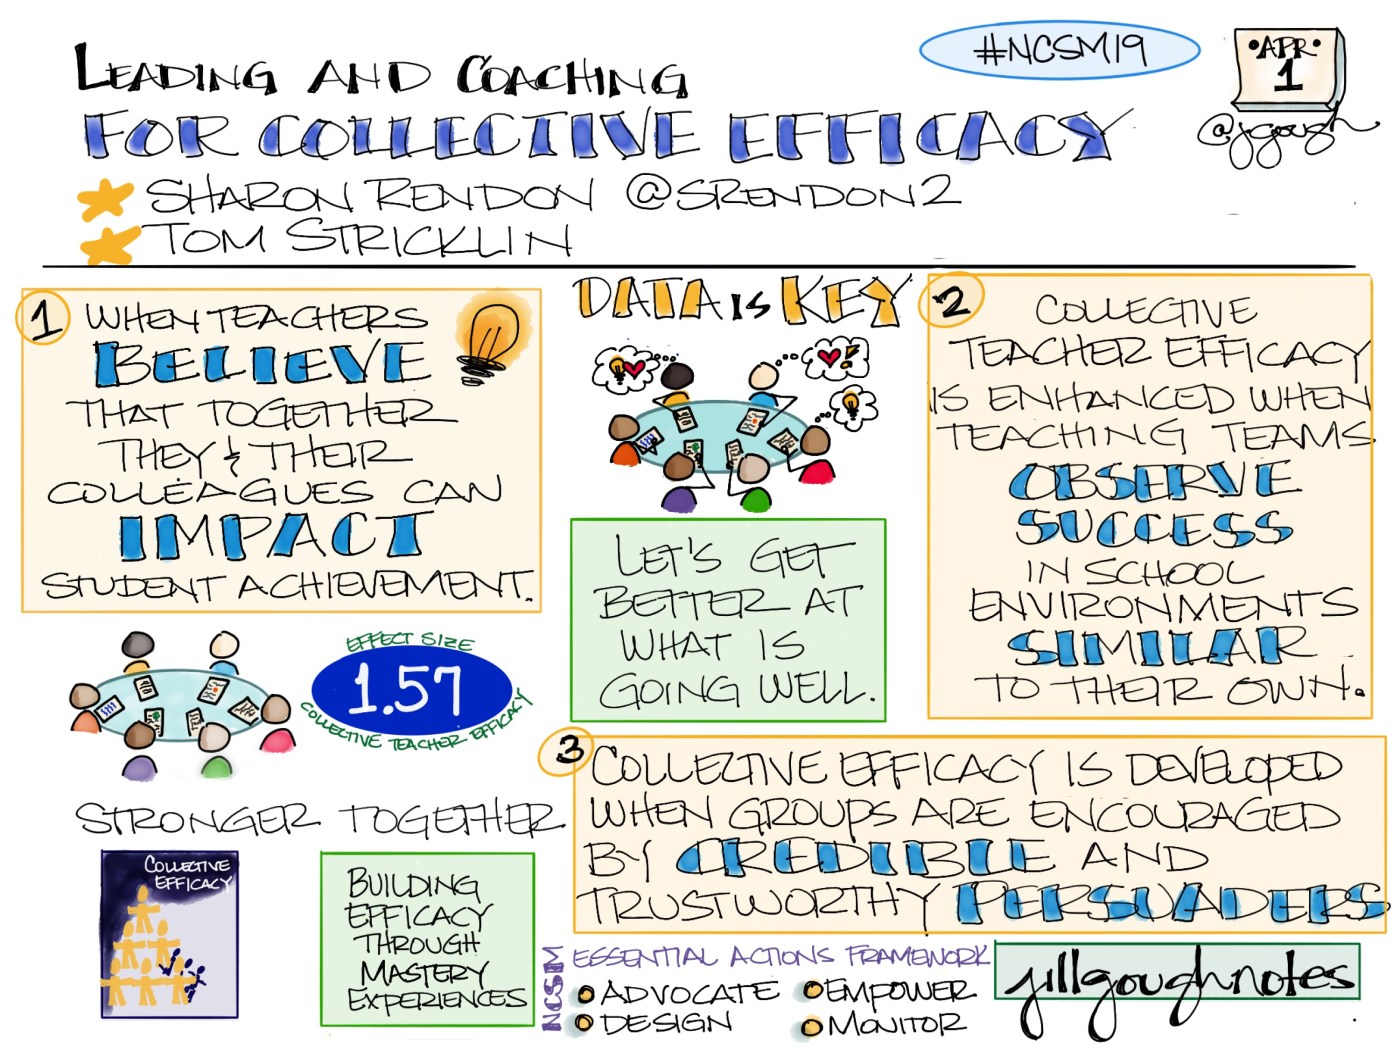 LEADING AND COACHING
FOR COLLECTIVE EFFICACY
#NCSM19
•APR•
1
@jgough
SHARON RENDON @SRENDON2
TOM STRICKLIN
1 WHEN TEACHERS
BELIEVE
THAT TOGETHER
THEY & THEIR
COLLEAGUES CAN
IMPACT
STUDENT ACHIEVEMENT.
EFFECT SIZE
1.57
COLLECTIVE TEACHER EFFICACY
STRONGER TOGETHER
COLLECTIVE
EFFICACY
BUILDING
EFFICACY
THROUGH
MASTERY
EXPERIENCES
DATA IS KEY
LET'S GET
BETTER AT
WHAT IS
GOING WELL.
2 COLLECTIVE
TEACHER EFFICACY
IS ENHANCED WHEN
TEACHING TEAMS
OBSERVE
SUCCESS
IN SCHOOL
ENVIRONMENTS
SIMILAR
TO THEIR OWN.
3 COLLECTIVE EFFICACY IS DEVELOPED
WHEN GROUPS ARE ENCOURAGED
BY CREDIBLE AND
TRUSTWORTHY PERSUADERS.
NCSM
ESSENTIAL ACTIONS FRAMEWORK
ADVOCATE
EMPOWER
DESIGN
MONITOR
jillgoughnotes